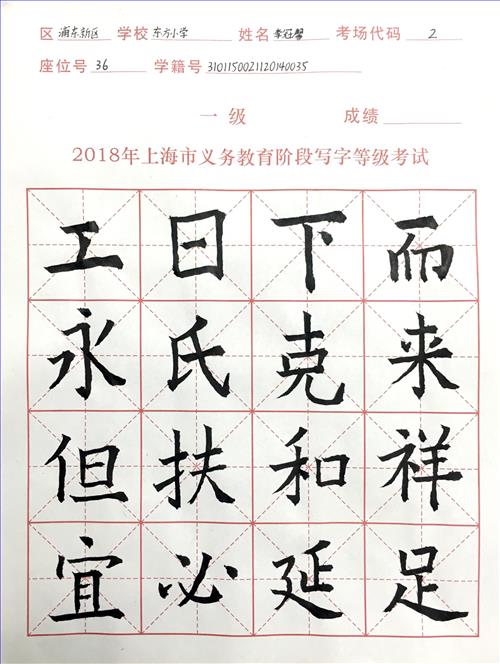 区 浦东新区 学校 东方小学 姓名 李冠馨 考场代码 2
座位号 36 学籍号 3101150021120140035
一级 成绩
2018年上海市义务教育阶段写字等级考试
工曰下而
永氏克来
但扶和祥
宜必延足